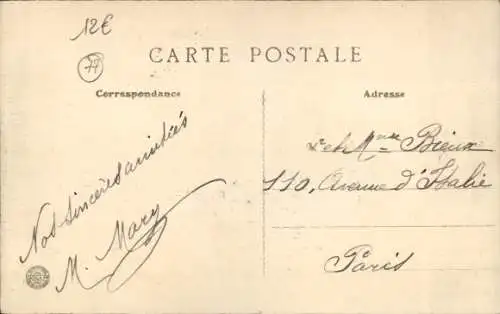 12€
77
CARTE POSTALE
Correspondance
Adresse
Nos sincères amitiés
M. Mary
et Mme Bieux
110, Avenue d'Italie
Paris